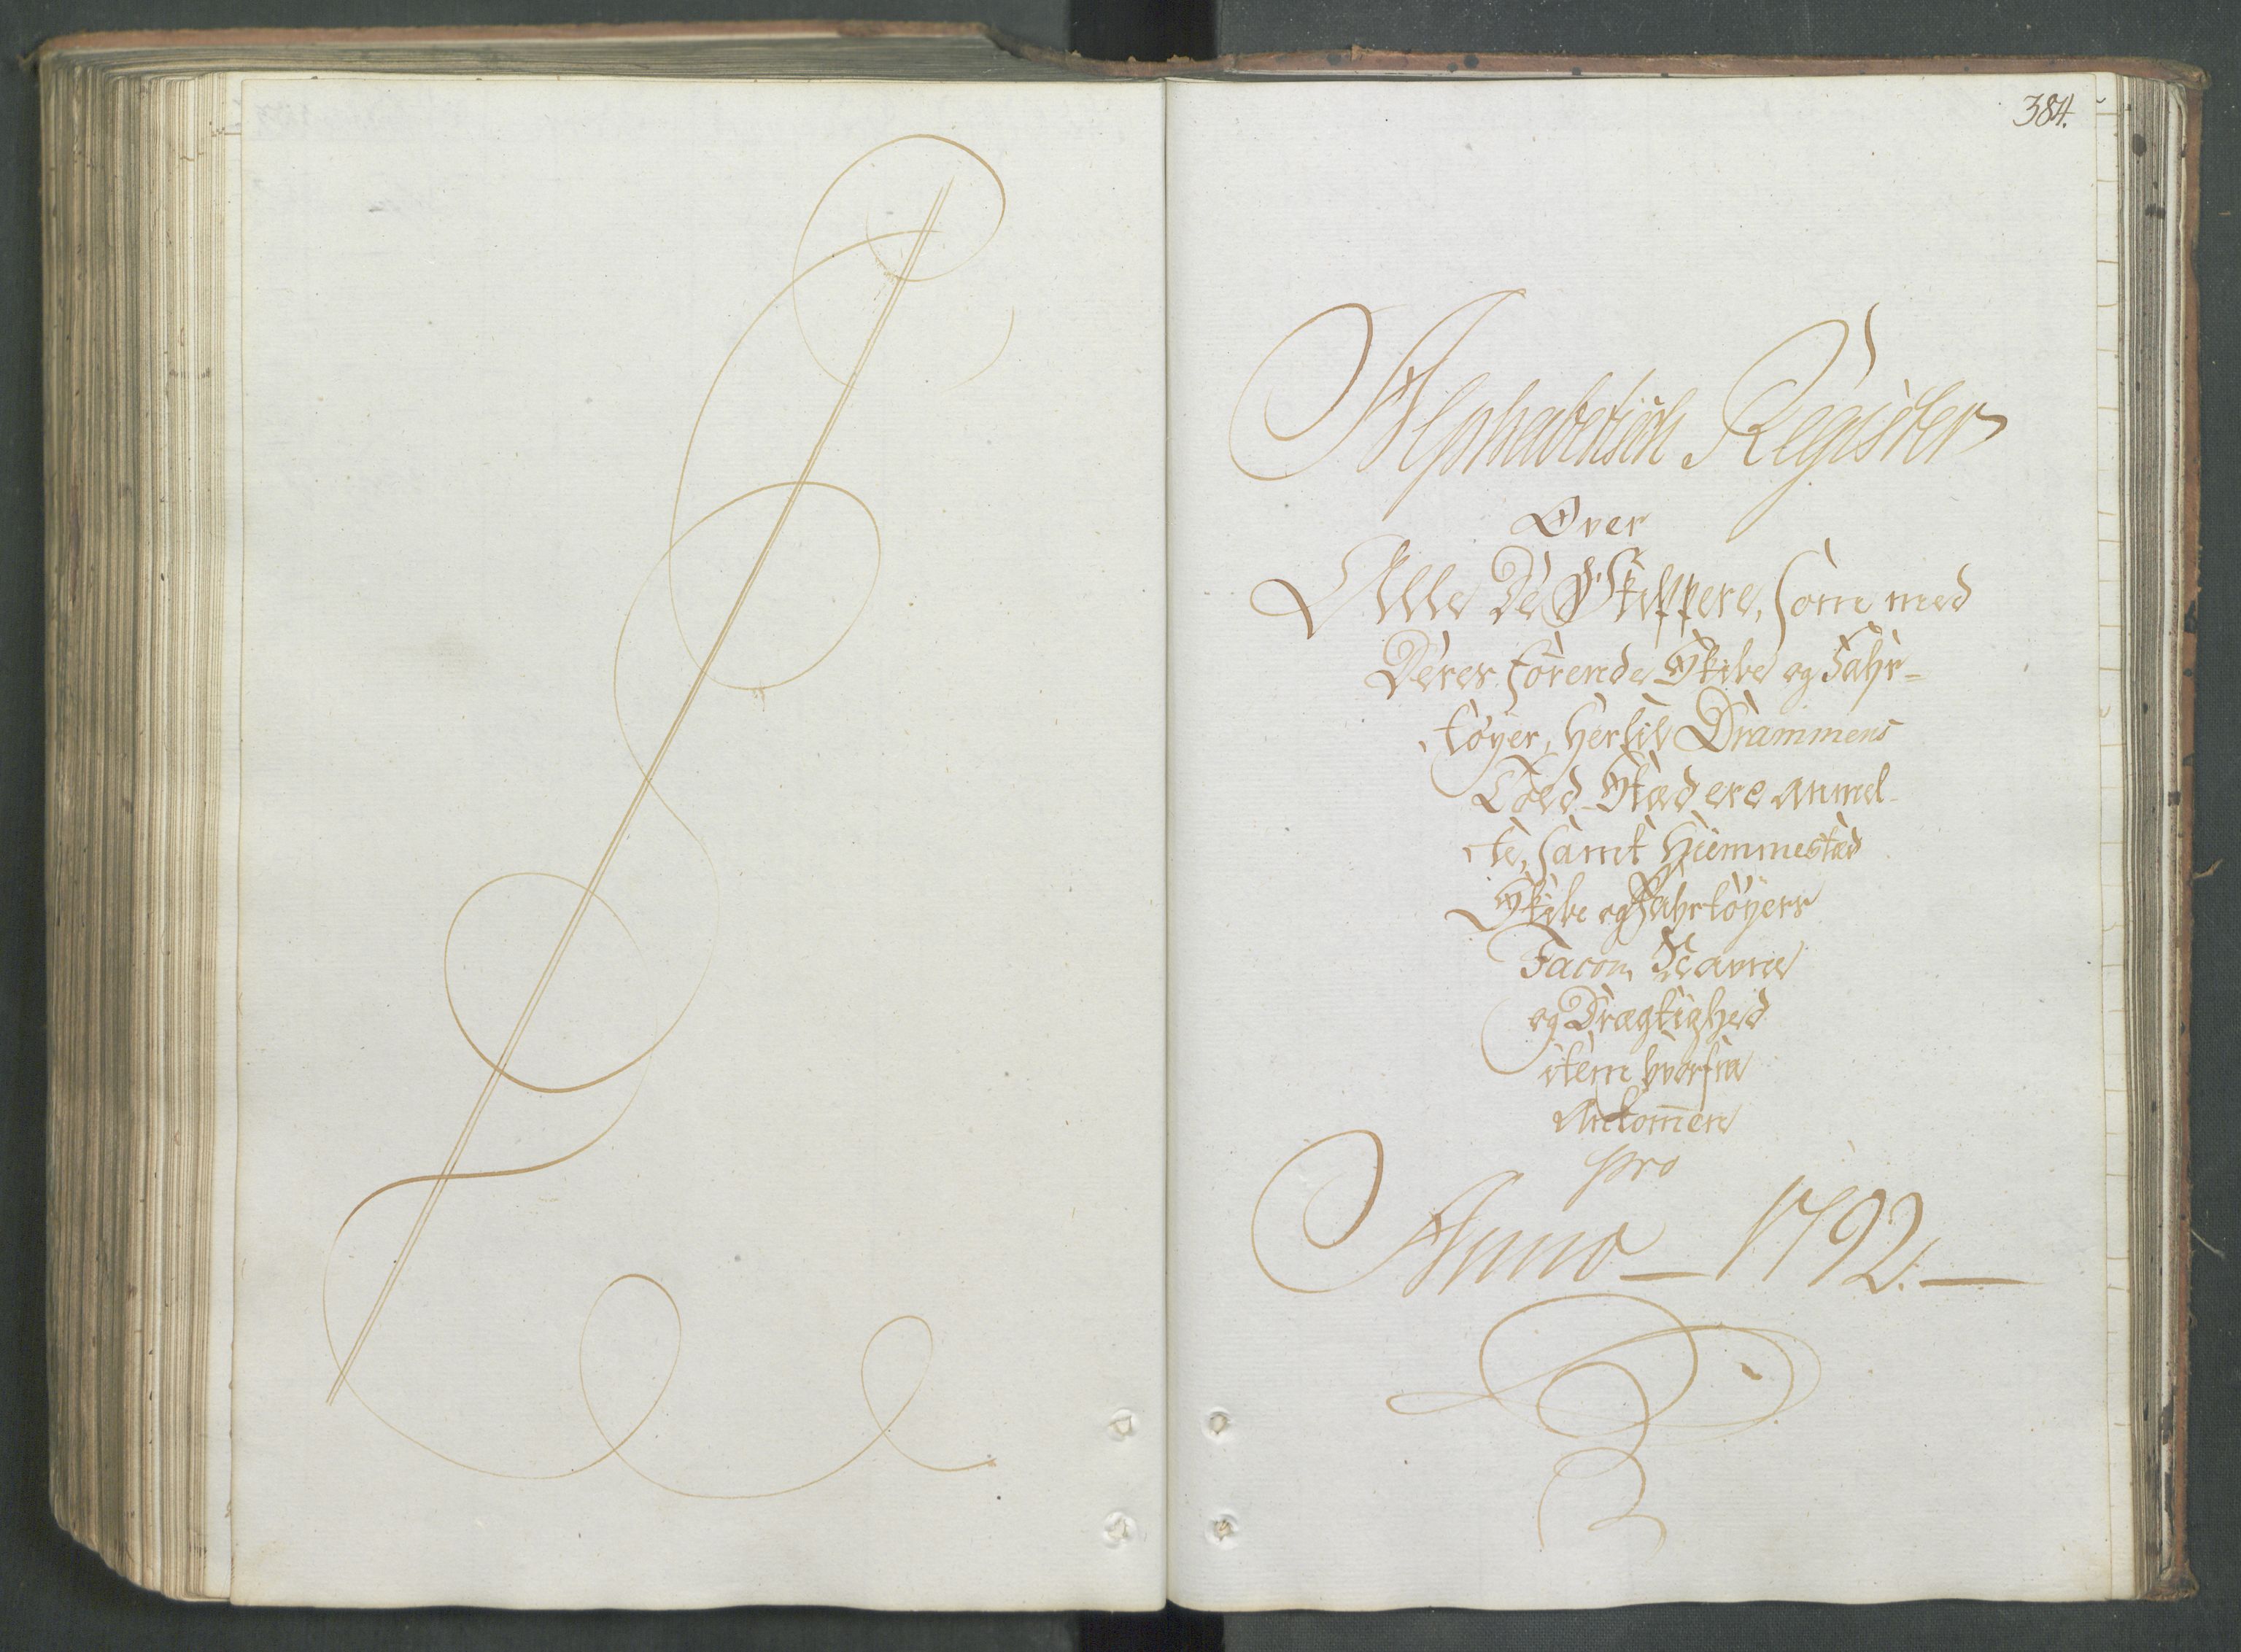 384.
Alphabetisch Register
Over
Alle De Skippere, som med
Deres førende Skibe og Fahr-
tøyer, hertil Drammens
Told-Stæd ere anmel-
te, samt Hiemmestæd
Skibe og Fahrtøyers
Facon, Navne
og Drægtighed
item hvorfra
Ankom̅en
pro
Anno - 1792. -